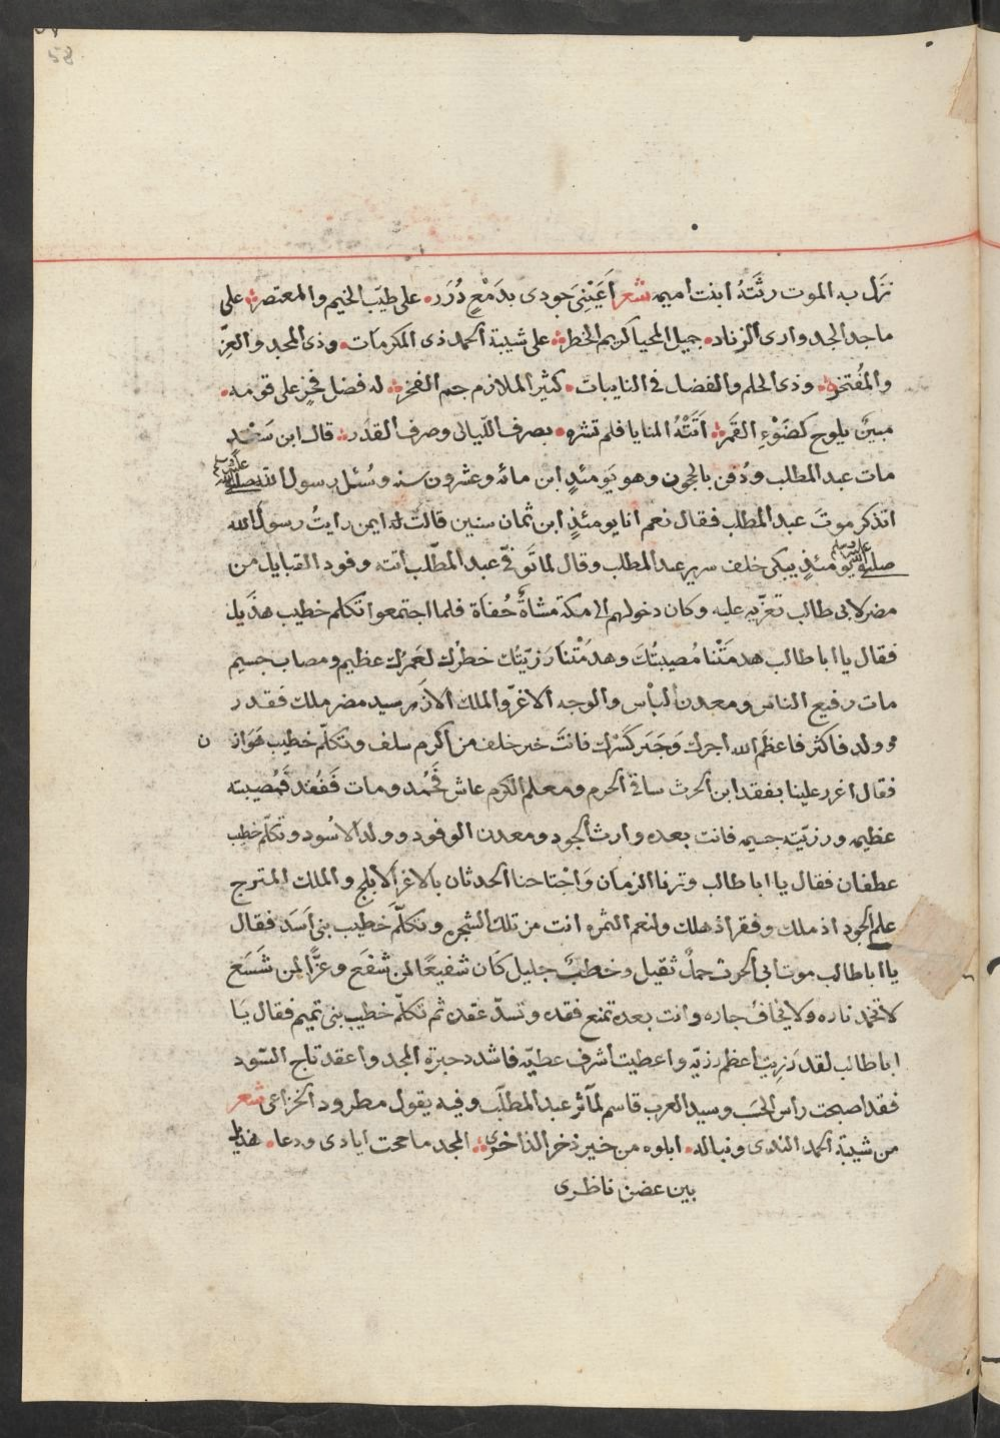 58
نَزَل به الموت رثَتْهُ ابنت اميمه شعر اَعَيْنِيَ جودى بدَمْعٍ دُرَر، على طيّب الخيم والمعتصر؞ على
ماجد الجد وارى الزناد، جميل المحيا كريم الخطر؞ على شيبة الحمد ذى المكرمات، وذى المجد والعِزّ
والمُفْتخر؞ وذى الحلم والفضل فى النايبات، كثير الملازم جم الفخر؞ له فضل فخرٍ على قومه،
مبينٌ يلوح كضَوْءِ القَمَر؞ اَتَتْهُ المنايا فلم تشره، بصرف اللّيالى وصرف القدر؞ قال ابن سَعْد
مات عبد المطلب ودُفن بالحجون وهو يَومئذٍ ابن مائه وعشرون سنه وسُئل رسول الله صلى الله عليه وسلم
اتذكر موتَ عبد المطلب فقال نعم انا يومئذٍ ابن ثمان سنين قالت له ايمن رايتُ رسول الله
صلى الله عليه وسلم يومئذٍ يبكى خلف سرير عبد المطلب وقال لما تَوَفّى عبد المطّلب أتته وفود القبايل من
مضر لابى طالب تعزّيه عليه وكان دخولهم الى مكة مشاةً حُفاَة فلما اجتمعوا تكلم خطيب هذَيل
فقال يا ابا طالب هدمَتْنا مُصيبتُكَ وهدمَتْنا رزيّتُك خطرُك لعَمرُك عظيم ومصاب جسيم
مات رفيع الناس ومعدن البأس والوجه الاغرّ والملك الازهر سيد مضر ملك فقدر
وولد فاكثر فاعظَم الله اجرك وَجَبَر كَسْرك فانتَ خير خلف من اكرم سلف وتكلّم خطيب هَوَازن
فقال اغرر علينا بفقد ابن الحرث ساقى الحرم ومعلم الكرم عاش فَحُمد ومات فَفُقد فمُصيبته
عظيمه ورزيّته جسيمه فانت بعده وارث الجود ومعدن الوفود وولد الاسُود وتكلّم خطيب
عطفان فقال يا ابا طالب وترنا الزمان وَاجْتاحنا الحدثان بالاغر الابلج والملك المترج
علم الجود اذ ملك وفقر اذ هلك ولنعم الثمره انت من تلك الشجره وتكلّم خطيب بنى اَسَد فقال
يا ابا طالب موت ابى الحرث حملٌ ثقيل وخطبٌ جليل كَان شفيعًا لمن شفَع وعزًّا لمن شَسَع
لا تخمد ناره ولا يخافُ جاره وانت بعده تمنع فقده وتسدّ عقده ثم تكلّم خطيب بنى تميم فقال يَا
ابا طالب لقد رَزِيتَ أعظم رزيّه واعطيت أشرف عطيّه فاشدد حبرة المجد واعقد تاج السّود
فقد اصبحت رأس الحَسَب وسيد العرب قاسم لمآثر عبد المطلّب وفيه يقول مطرود الخزاعى شعر
من شيبة الحمد الندى ونباله، ابلوه من خير ذخر الذاخرى؞ المجد ما حجت ايادى ودعا،
بين عضن ناظرى